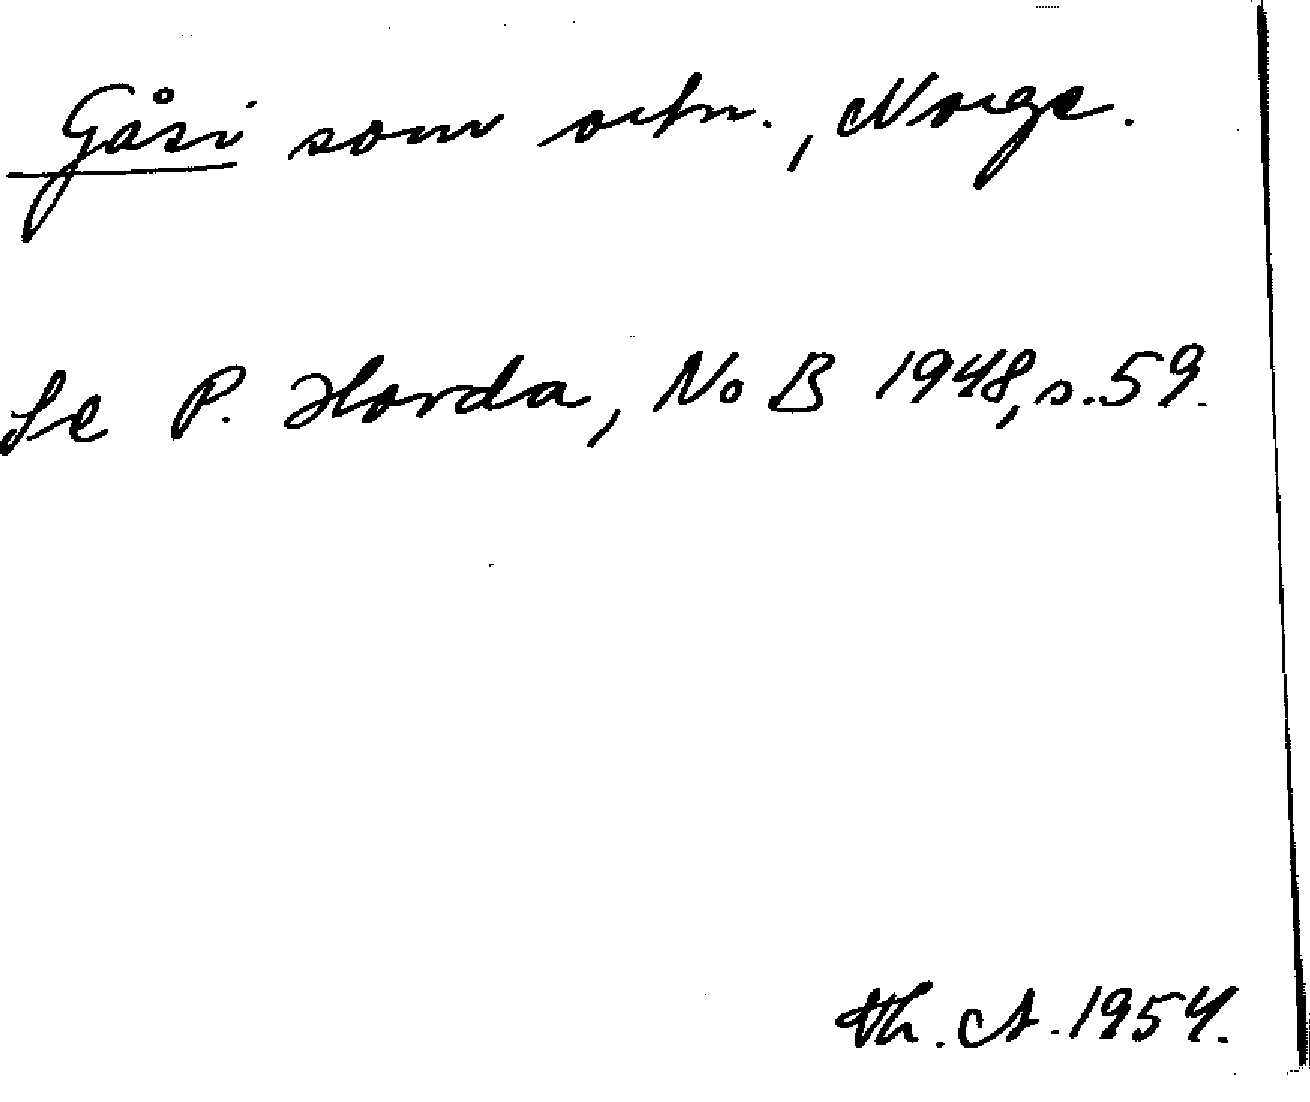 Gåsi som ortn., Norge.
Se P. Hovda, NoB 1948, s. 59.
Th. A. 1954.